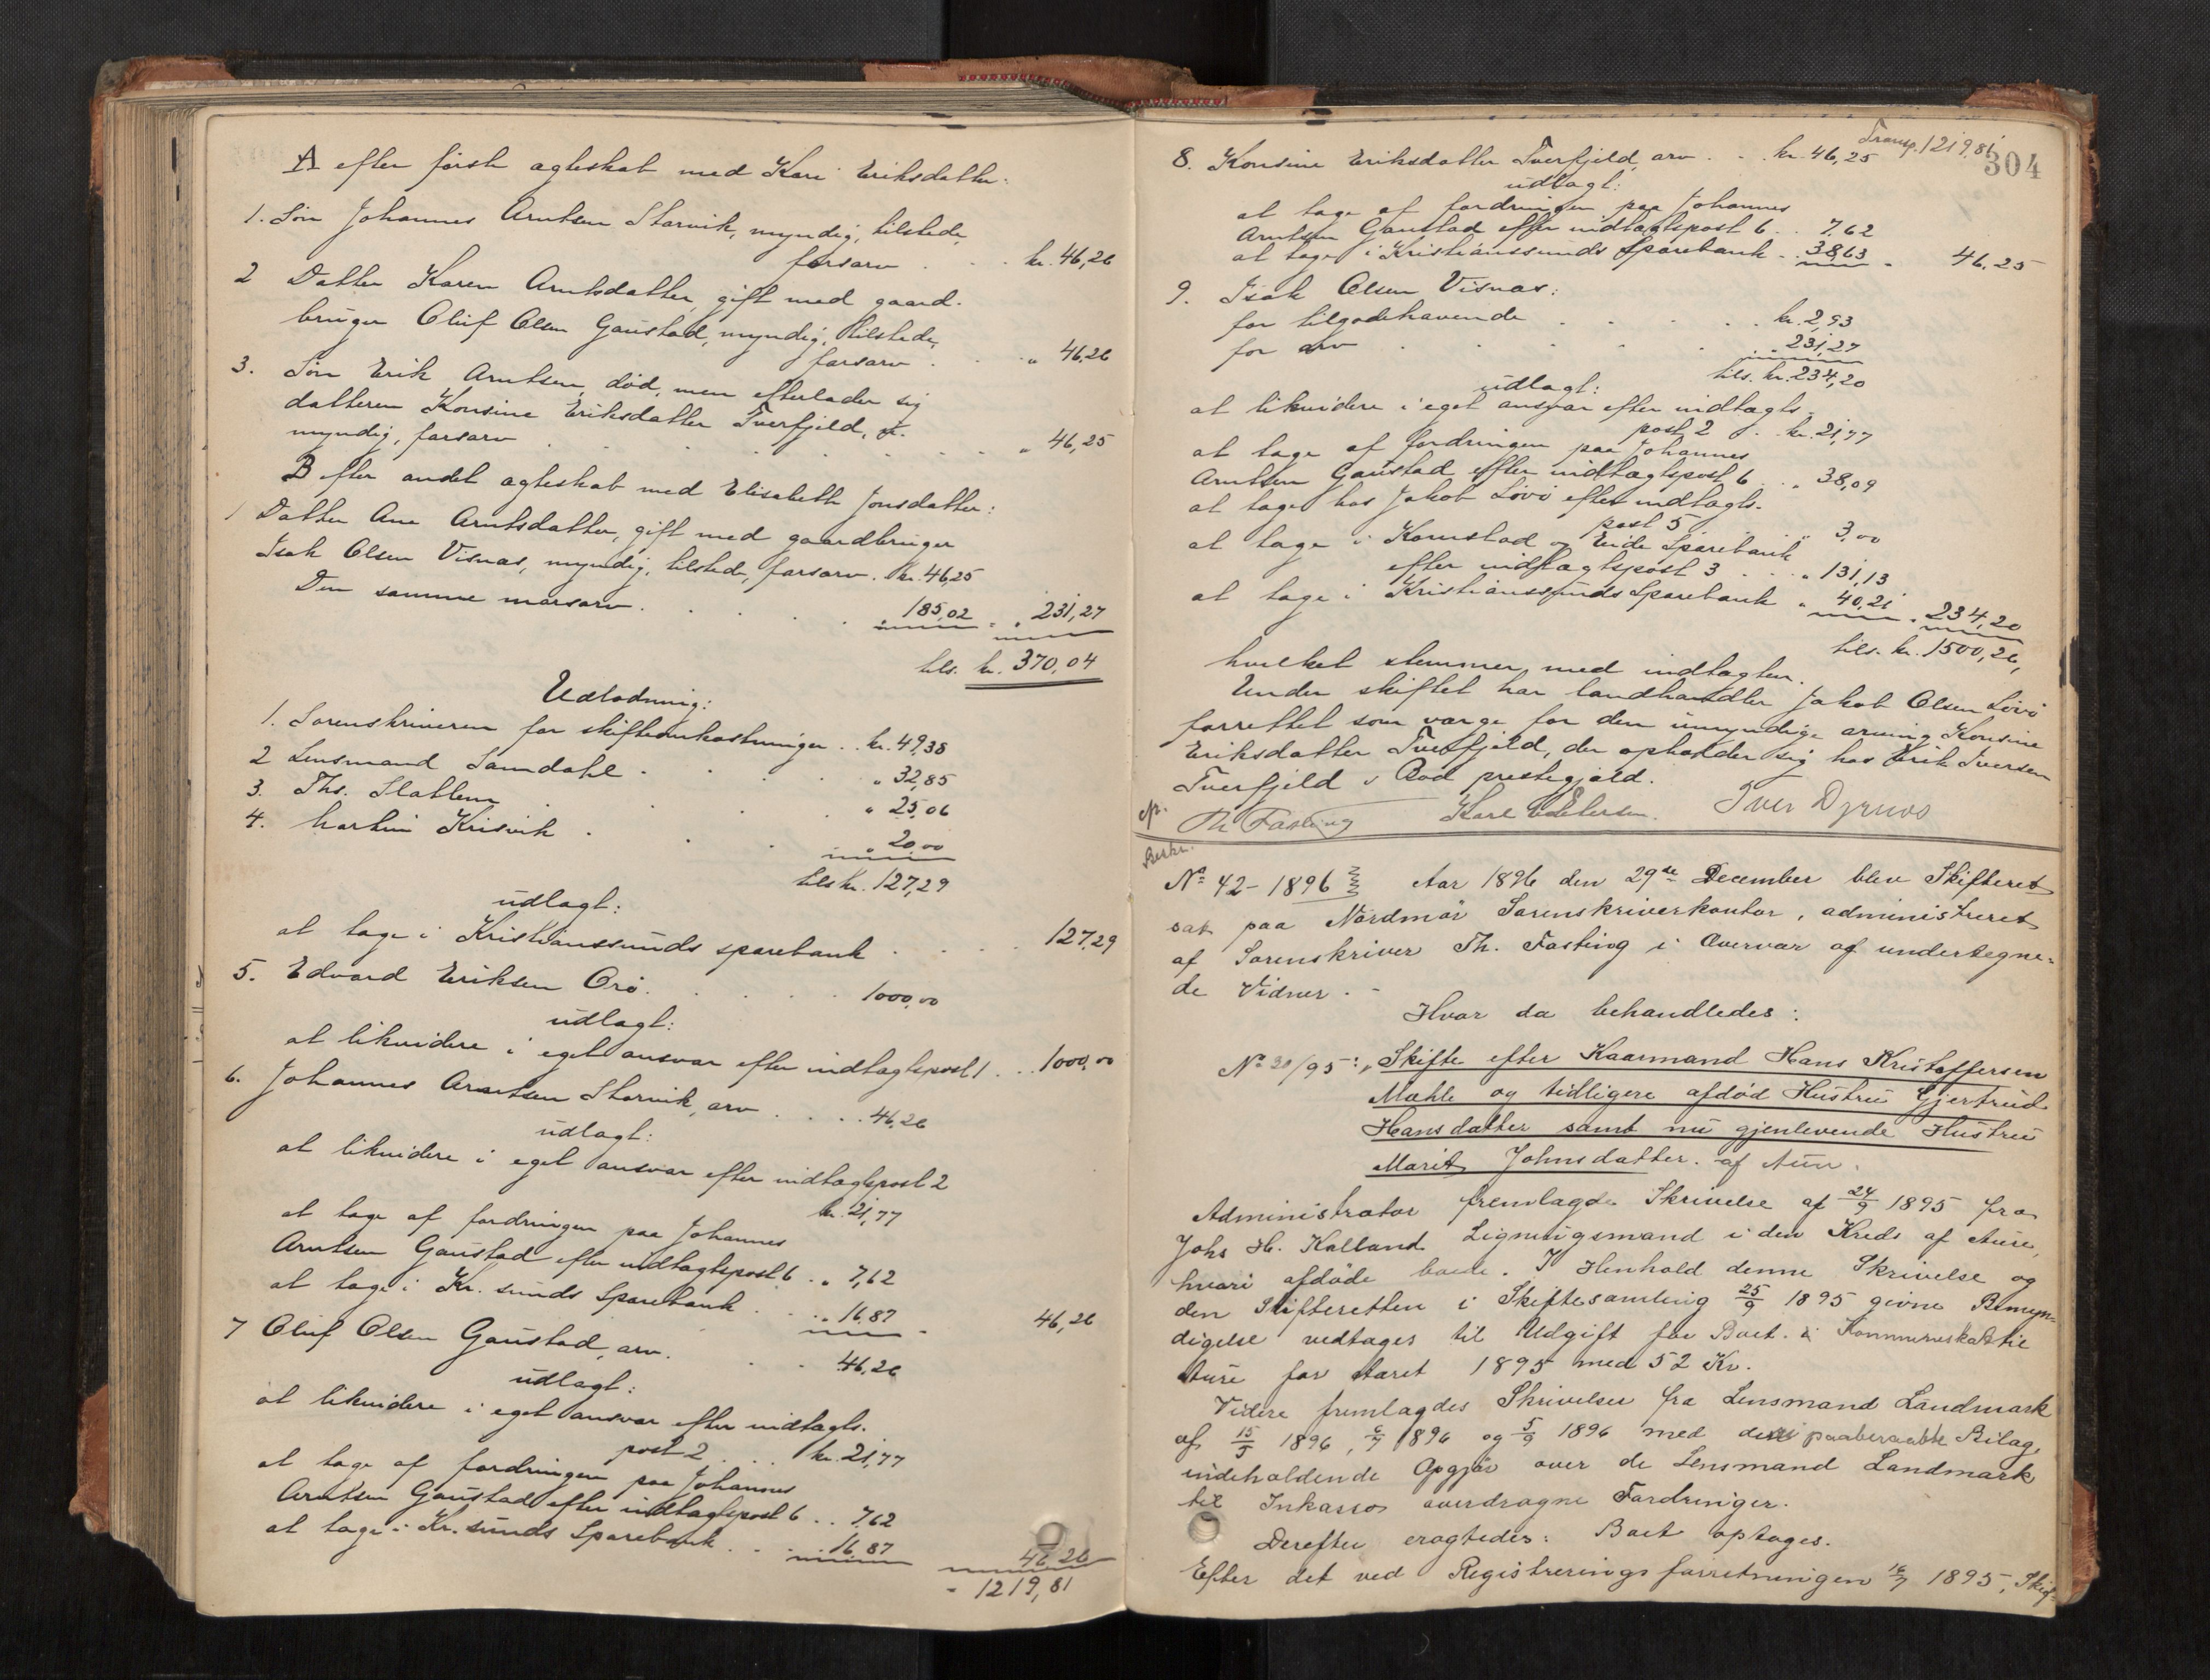 A efter første ægteskab med Kari Eriksdatter:
1. Søn Johannes Arntsen Storvik, myndig, tilstede,
farsarv . . . kr. 46,26
2 Datter Karen Arntsdatter, gift med gaard-
bruger Oluf Olsen Gaustad, myndig, tilstede,
farsarv . . . " 46,26
3. Søn Erik Arntsen, død, men efterlader sig
datteren Konsine Eriksdatter Tverfjeld,
myndig, farsarv . . . " 46,25
B efter andet ægteskab med Elisabeth Jonsdatter:
1 Datter Ane Arntsdatter, gift med gaardbruger
Isak Olsen Visnæs, myndig, tilstede, farsarv. kr. 46,25
Den samme morsarv . . . " 185,02 = " 231,27
tils. kr. 370,04
Udlodning:
1. Sorenskriveren for skifteomkostninger . . kr. 49,38
2 Lensmand Samdahl . . . " 32,85
3. Ths. Slatlem . . . " 25,06
4. Martin Krisvik . . . " 20,00
tils kr. 127,29
udlagt:
at tage i Kristianssunds sparebank . . . 127,29
5. Edvard Eriksen Orø . . . 1000,00
udlagt:
at likvidere i eget ansvar efter indtægtspost 1 . . 1000,00
6. Johannes Arntsen Storvik, arv . . . 46,26
udlagt:
at likvidere i eget ansvar efter indtægtspost 2
kr. 21,77
at tage af fordringen paa Johannes
Arntsen Gaustad efter indtægtspost 6 . . " 7,62
at tage i Kr. sunds Sparebank . . . 16,87 = 46,26
7 Oluf Olsen Gaustad, arv . . . 46,26
udlagt:
at likvidere i eget ansvar efter indtægts-
post 2 . . . kr. 21,77
at tage af fordringen paa Johannes
Arntsen Gaustad efter indtægtspost 6 . . 7,62
at tage i Kr. sunds Sparebank . . . 16,87 46,26
= 1219,81
Transp. 1219,81
304
8. Konsine Eriksdatter Tverfjeld, arv . . kr. 46,25
udlagt:
at tage af fordringen paa Johannes
Arntsen Gaustad efter indtægtspost 6 . . 7,62
at tage i Kristianssunds Sparebank . . 38,63 = 46,25
9. Isak Olsen Visnæs:
for tilgodehavende . . . kr. 2,93
for arv . . . " 231,27
tils. kr. 234,20
udlagt:
at likvidere i eget ansvar efter indtægts-
post 2 . . kr. 21,77
at tage af fordringen paa Johannes
Arntsen Gaustad efter indtægtspost 6 . . " 38,09
at tage hos Jakob Løvø efter indtægts-
post 5 " 3,00
at tage i Kornstad og Eide Sparebank
efter indtægtspost 3 . . . " 131,13
at tage i Kristianssunds Sparebank " 40,21 = 234,20
tils. kr. 1500,26,
hvilket stemmer med indtægten.
Under skiftet har landhandler Jakob Olsen Løvø
forrettet som værge for den umyndige arving Konsine
Eriksdatter Tverfjeld, der opholder sig hos Erik Iversen
Tverfjeld i Bod prestegjæld.
Th Fasting Karl Edv Petersen. Iver Dyrnes
Beskr.
No 42-1896 Aar 1896 den 29de December blev Skifteret
sat paa Nordmør Sorenskriverkontor, administreret
af Sorenskriver Th. Fasting i Overvær af undertegne-
de Vidner. -
Hvor da behandledes:
No 30/95: „Skifte efter Kaarmand Hans Kristoffersen
Mæhle og tidligere afdød Hustru Gjertrud
Hansdatter samt nu gjenlevende Hustru
Marit Johnsdatter. af Aure.
Administrator fremlagde Skrivelse af 24/9 1895 fra
Johs H. Kalland Ligningsmand i den Kreds af Aure,
hvori afdøde boede. I Henhold denne Skrivelse og
den Skifteretten i Skiftesamling 25/9 1895 givne Bemyn-
digelse vedtages til Udgift for Boet i Kommuneskat til
Aure for Aaret 1895 med 52 Kr.
Videre fremlagdes Skrivelser fra Lensmand Landmark
af 15/5 1896, 6/7 1896 og 5/9 1896 med deri paaberaabte Bilag,
indeholdende Opgjør over de Lensmand Landmark
til Inkasso overdragne Fordringer.
Derefter eragtedes: Boet optages.
Efter det ved Registreringsforretningen 16/7 1895, Skif-